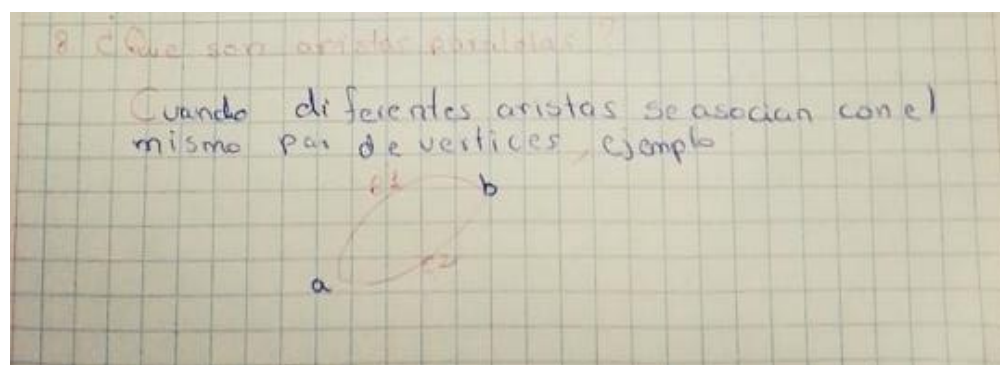 8 ¿Que son aristas paralelas?
Cuando diferentes aristas se asocian con el
mismo par de vertices, ejemplo
e1
b
e2
a